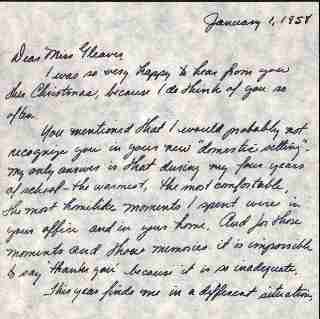 January 1, 1958
Dear Miss Gleaves
I was so very happy to hear from you
this Christmas, because I do think of you so
often.
You mentioned that I would probably not
recognize you in your new "domestic setting".
my only answer is that during my four years
of school - the warmest, the most comfortable,
the most homelike moments I spent were in
your office and in your home. And for those
moments and those memories it is impossible
to say thank you because it is so inadequate.
This year finds me in a different situation,